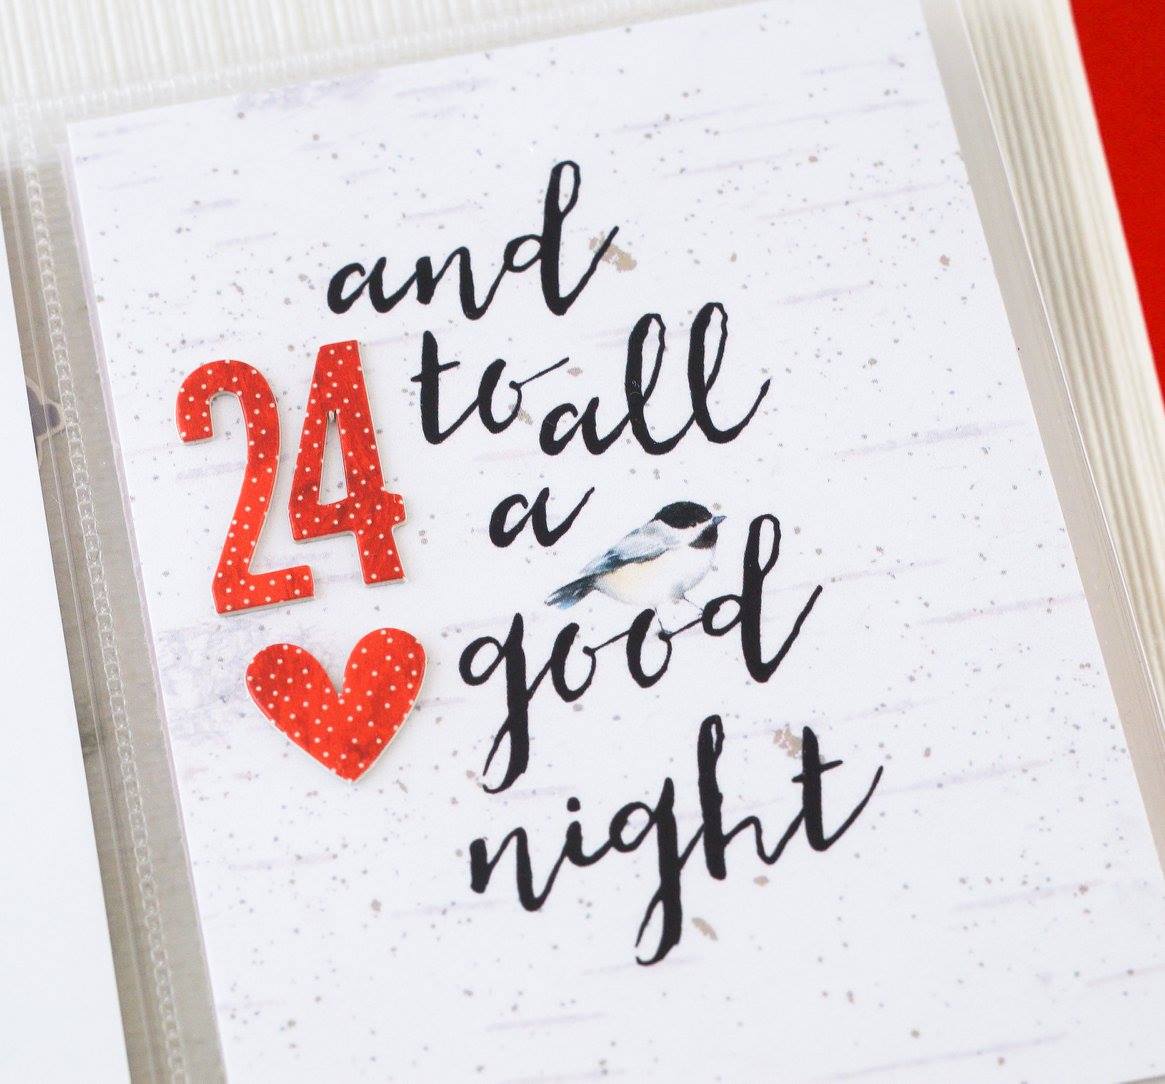 and
24 to all
a
good
night